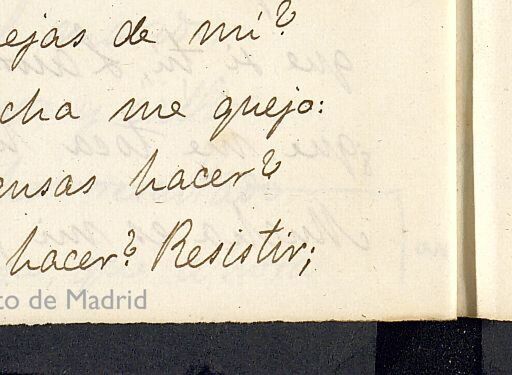 ejas de mí?
cha me quejo:
ensas hacer?
hacer? Resistir;
to de Madrid